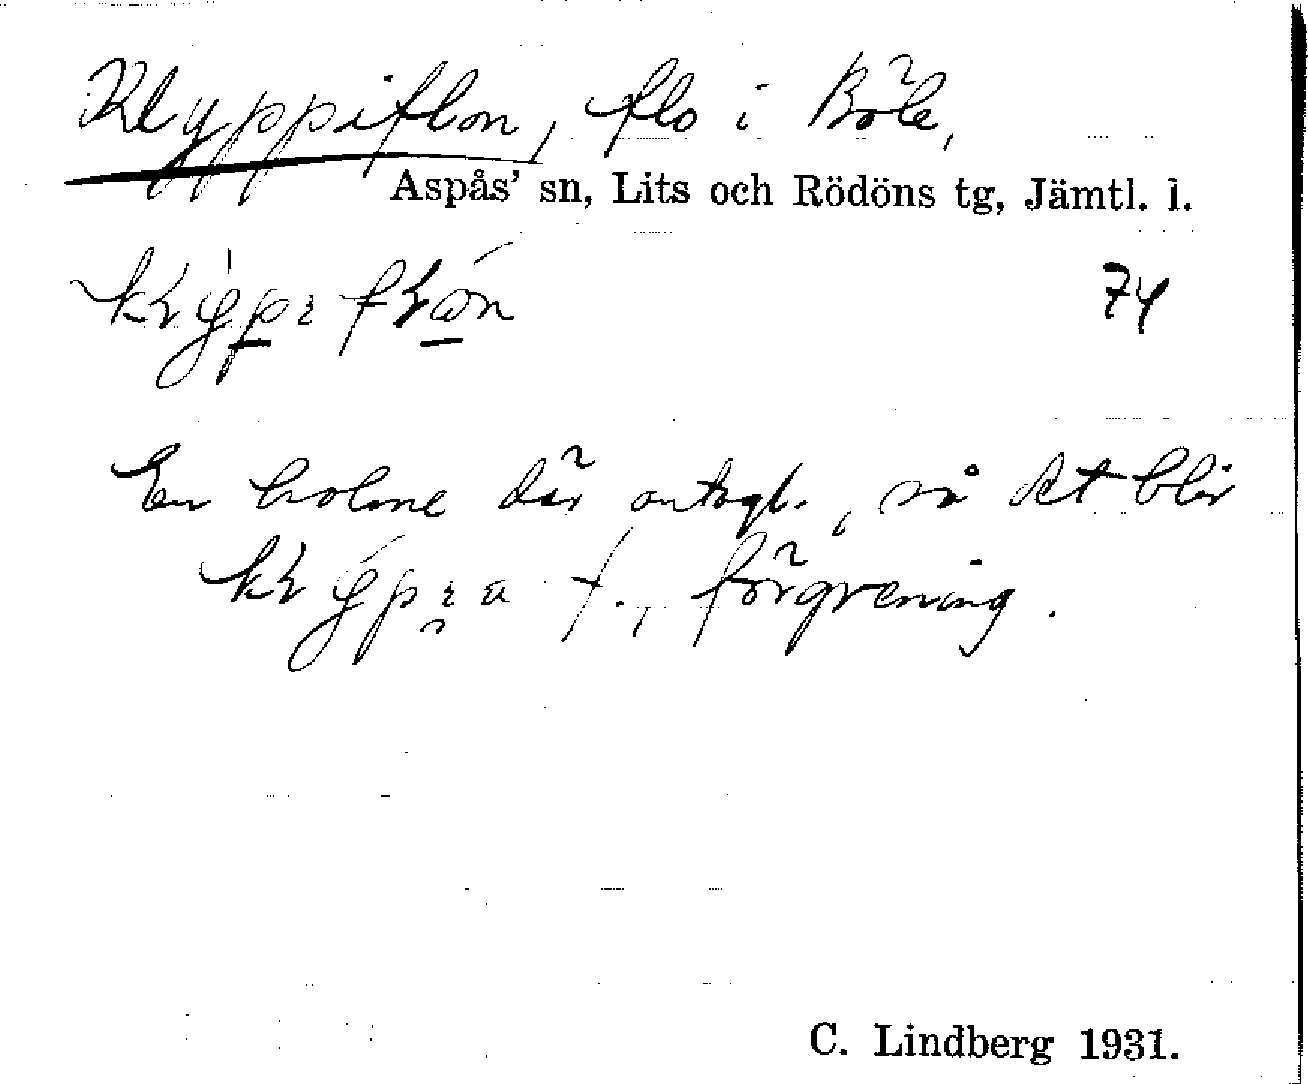 Klyppiflon, flo i Böle,
Aspås' sn, Lits och Rödöns tg, Jämtl. l.
74
En holme där antagl., så det blir
f., förgrening.
C. Lindberg 1931.